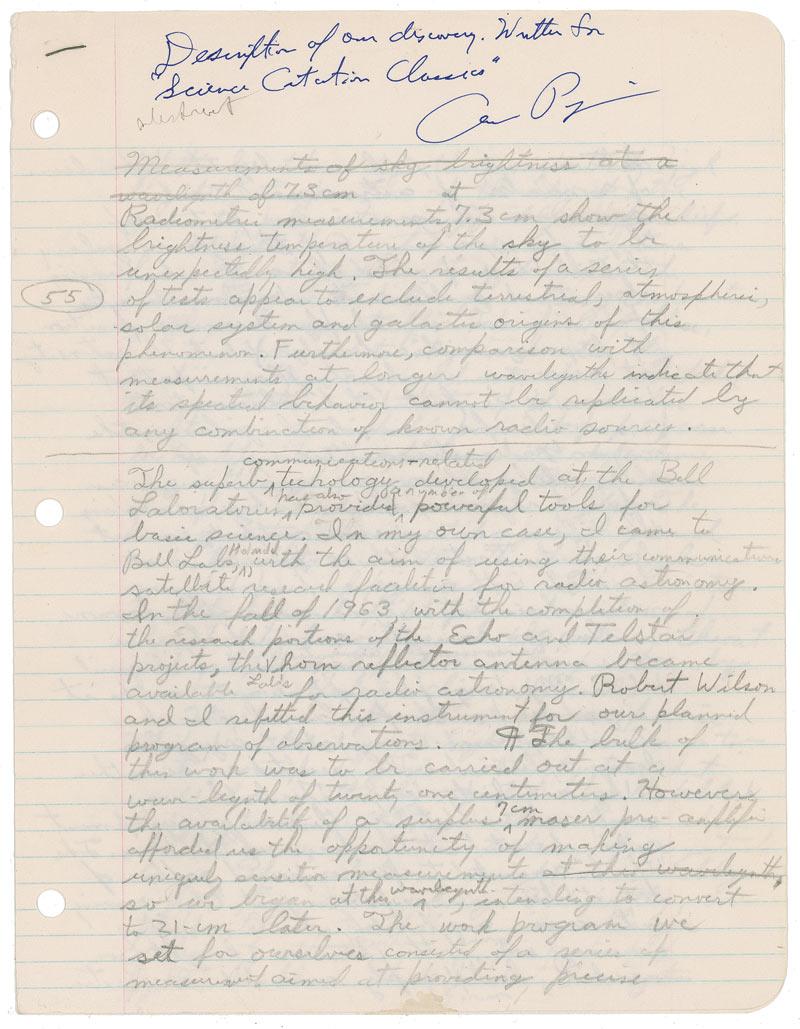 Description of our discovery. Written for
"Science Citation Classics"
abstract
Measurements of sky brightness at a
wavelength of 7.3 cm at
Radiometric measurements 7.3 cm show the
brightness temperature of the sky to be
unexpectedly high. The results of a series
55
of tests appear to exclude terrestrial, atmospheric,
solar system and galactic origins of this
phenomenon. Furthermore, comparison with
measurements at longer wavelengths indicate that
its spectral behavior cannot be replicated by
any combination of known radio sources.
communications-related
The superb techology developed at the Bell
has also a number of
Laboratories provided powerful tools for
basic science. In my own case, I came to
Holmdel
Bell Labs, with the aim of using their communications
satellite research facilities for radio astronomy.
In the fall of 1963, with the completion of
the research portions of the Echo and Telstar
projects, the horn reflector antenna became
Lab's
available for radio astronomy. Robert Wilson
and I refitted this instrument for our planned
program of observations. ¶ The bulk of
this work was to be carried out at a
wave-length of twenty one centimeters. However
7cm
the availability of a surplus maser pre-amplifier
afforded us the opportunity of making
uniquely sensitive measurements at this wavelength,
wavelength
so we began at this , intending to convert
to 21-cm later. The work program we
set for ourselves consisted of a series of
measurement aimed at providing precise